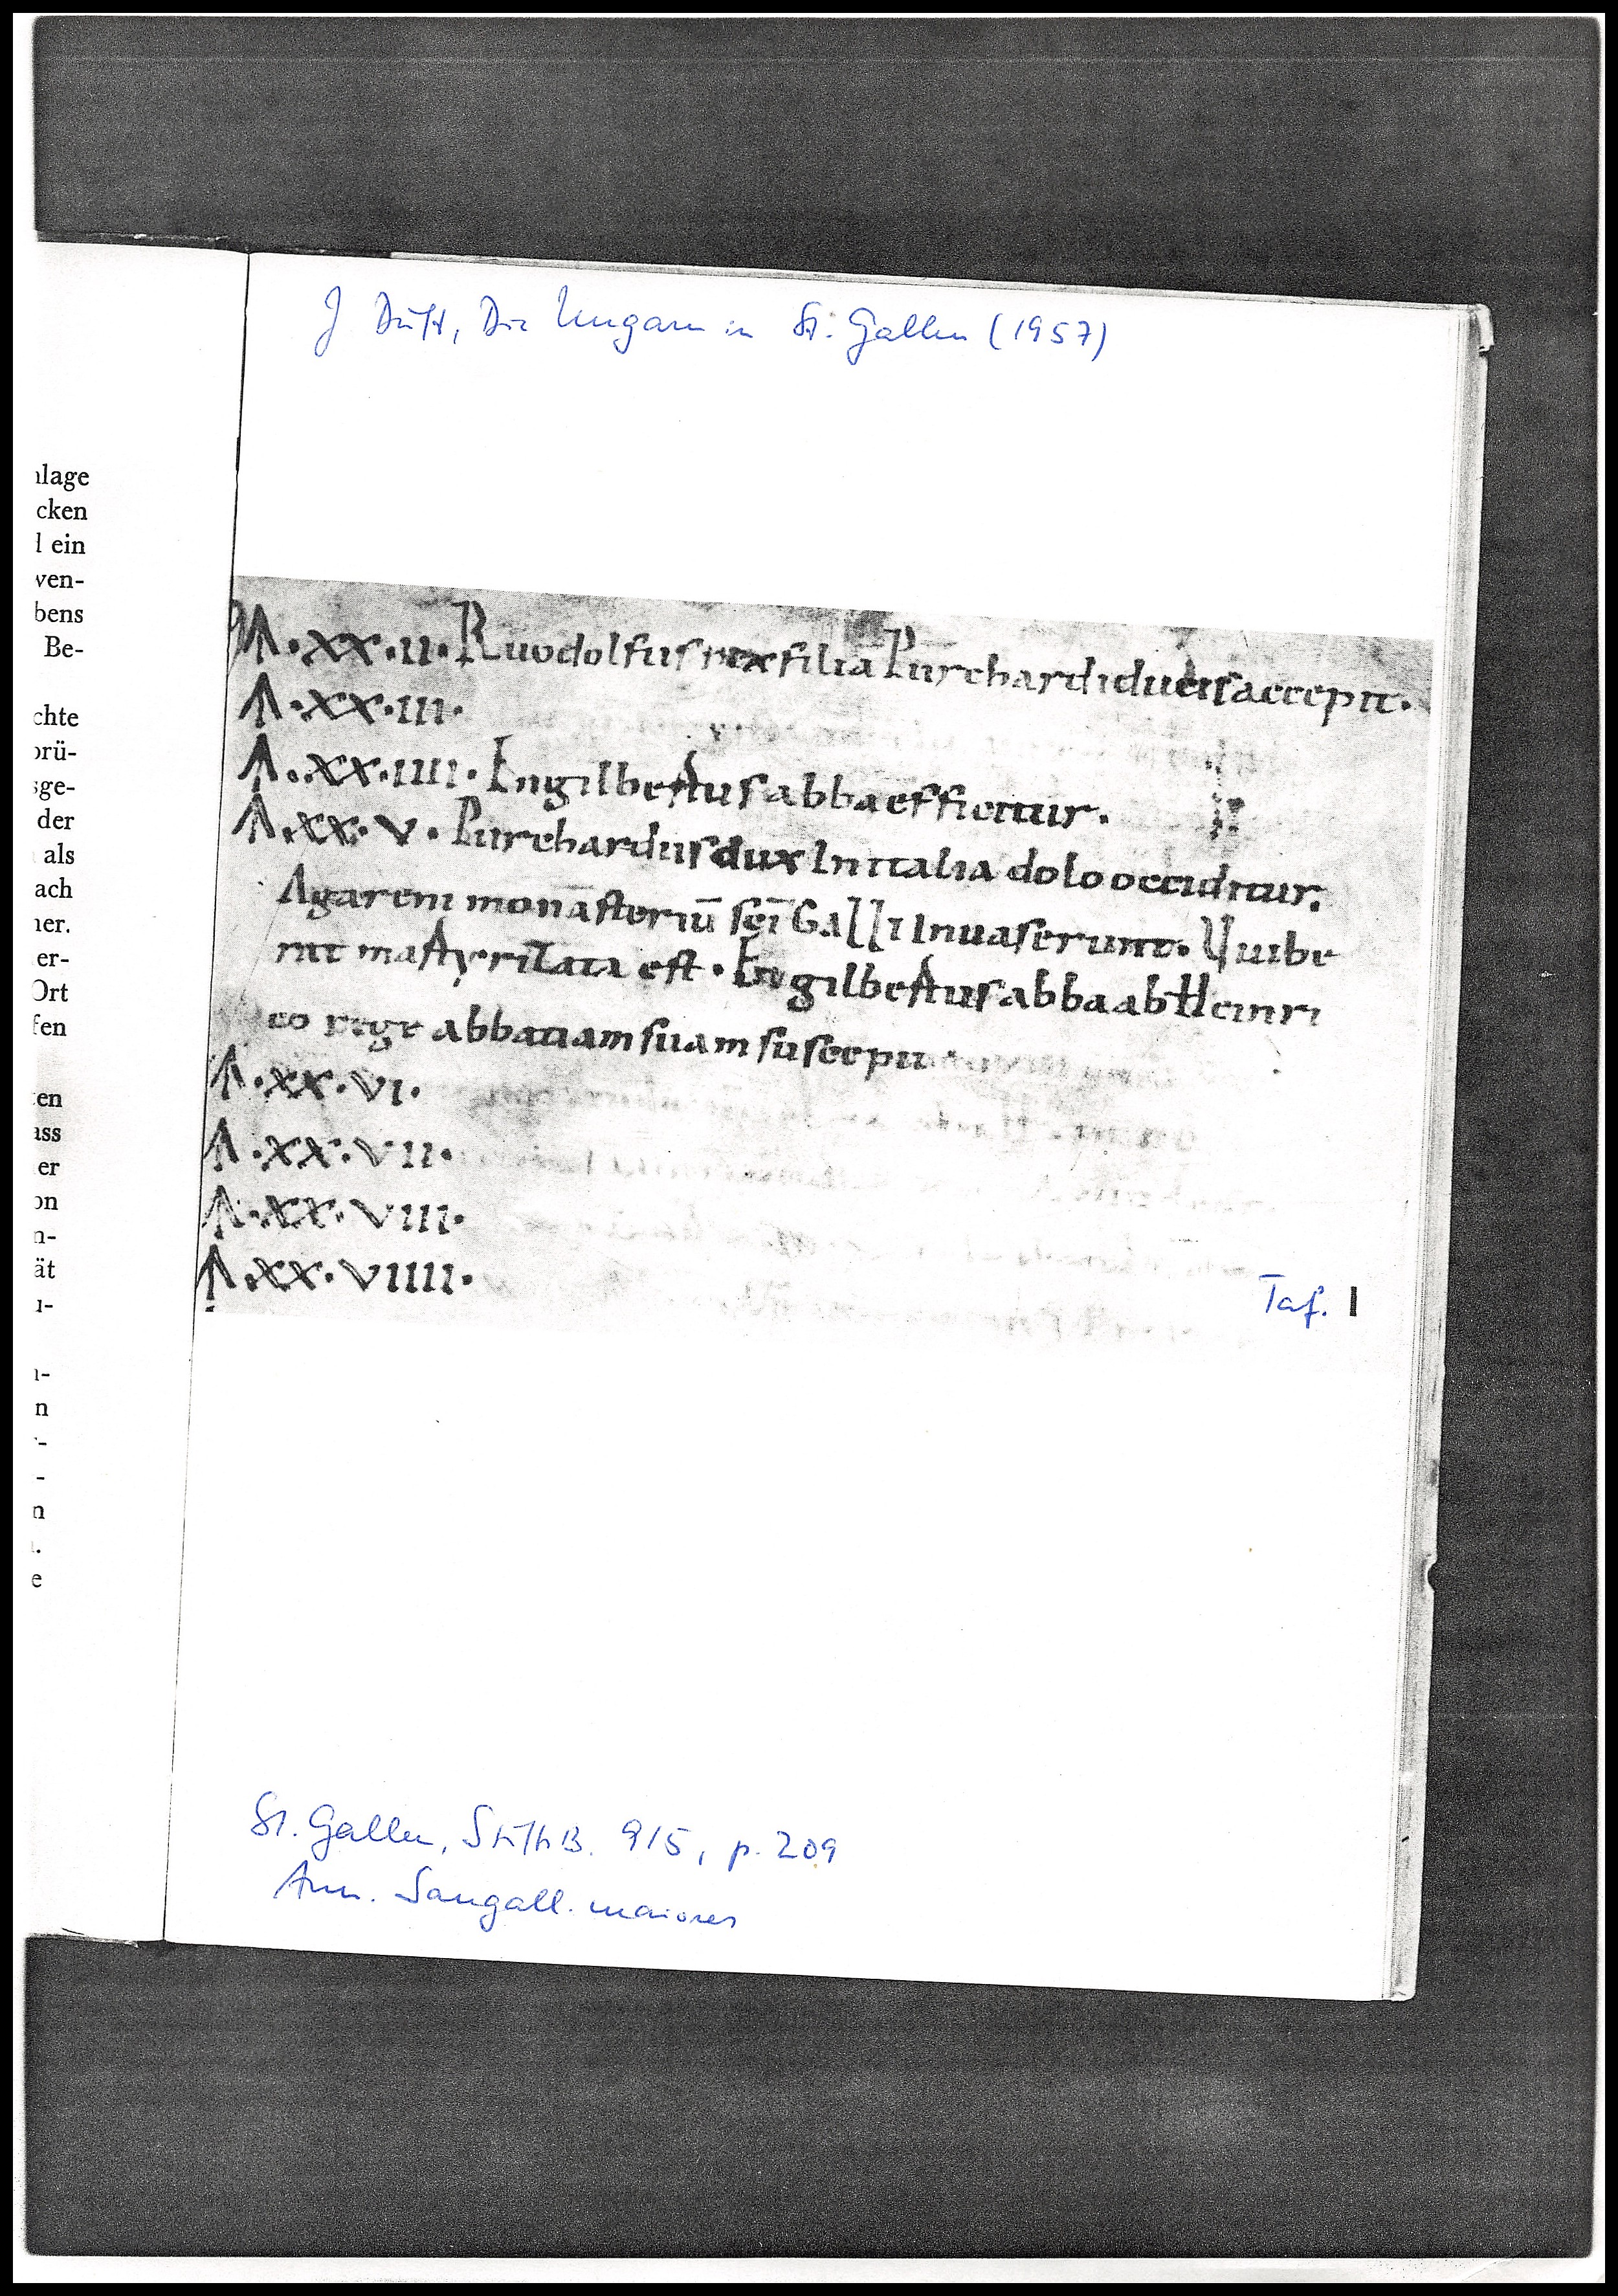 J Duft, Die Ungarn in St. Gallen (1957)
lage
cken
l ein
ven-
bens
Be-
chte
prü-
sge-
der
als
ach
ner.
er-
Ort
fen
en
ass
er
on
n-
ät
n
n
e
·XX·II· Ruodolfus rex filia Purchardi ducis accepit.
·XX·III·
·XX·IIII· Engilbertus abba efficitur.
·XX·V· Purchardus dux In italia dolo occiditur.
Agareni monasteriū scī Galli Invaserunt. Uuibe
rat martyrizata est. Engilbertus abba ab Heinri
co rege abbatiam suam suscepit
·XX·VI·
·XX·VII·
·XX·VIII·
·XX·VIIII·
Taf. I
St. Gallen, StiftsB. 915, p. 209
Ann. Sangall. maiores